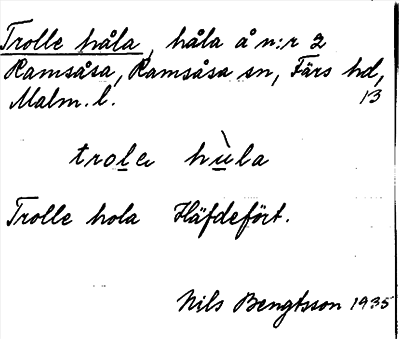 Trolle håla, håla å n:r 2
Ramsåsa, Ramsåsa sn, Färs hd,
Malm. l. 13
trole hùla
Trolle hola Häfdefört.
Nils Bengtsson 1935